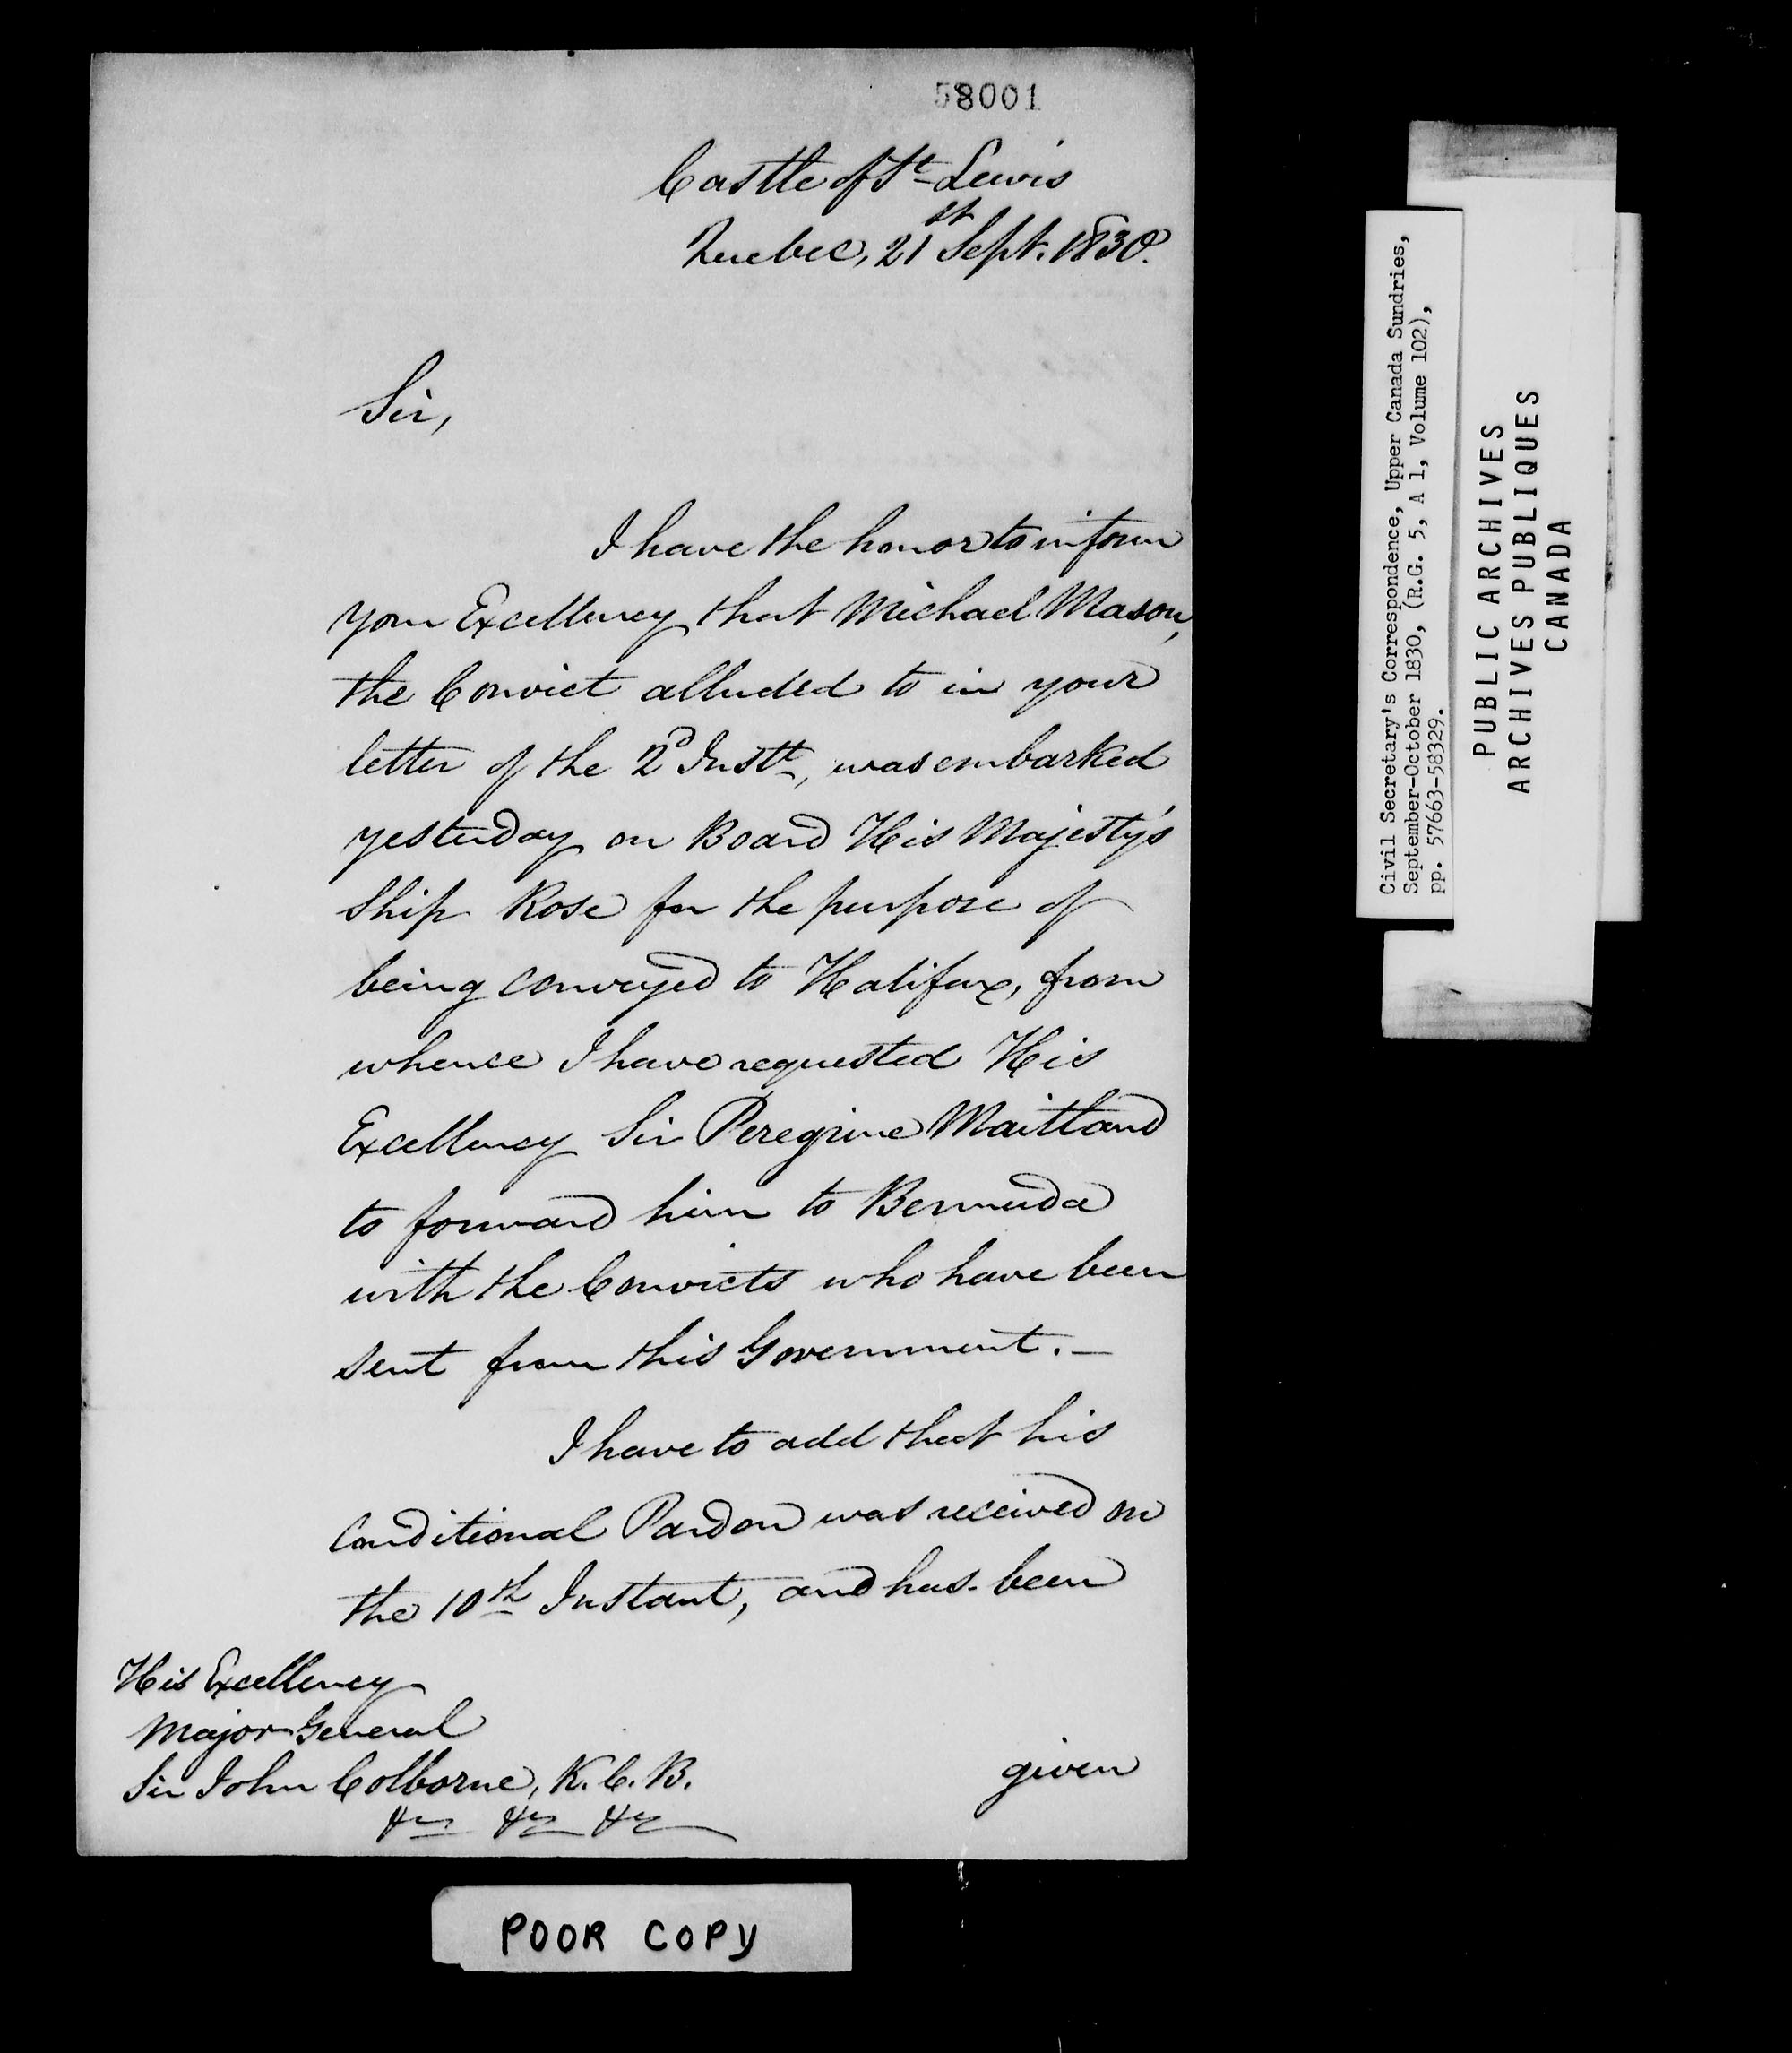 58001
Castle of St Lewis
Quebec, 21st Sept. 1830.
Sir,
I have the honor to inform
your Excellency that Michael Mason,
the Convict alluded to in your
letter of the 2d Instt, was embarked
yesterday on Board His Majesty's
Ship Rose for the purpose of
being conveyed to Halifax, from
whence I have requested His
Excellency Sir Peregrine Maitland
to forward him to Bermuda
with the Convicts who have been
sent from this Government. —
I have to add that his
Conditional Pardon was received on
the 10th Instant, and has been
His Excellency
Major General
Sir John Colborne, K.C.B.
&c &c &c
given
POOR COPY
Civil Secretary's Correspondence, Upper Canada Sundries,
September-October 1830, (R.G. 5, A 1, Volume 102),
pp. 57663-58329.
PUBLIC ARCHIVES
ARCHIVES PUBLIQUES
CANADA